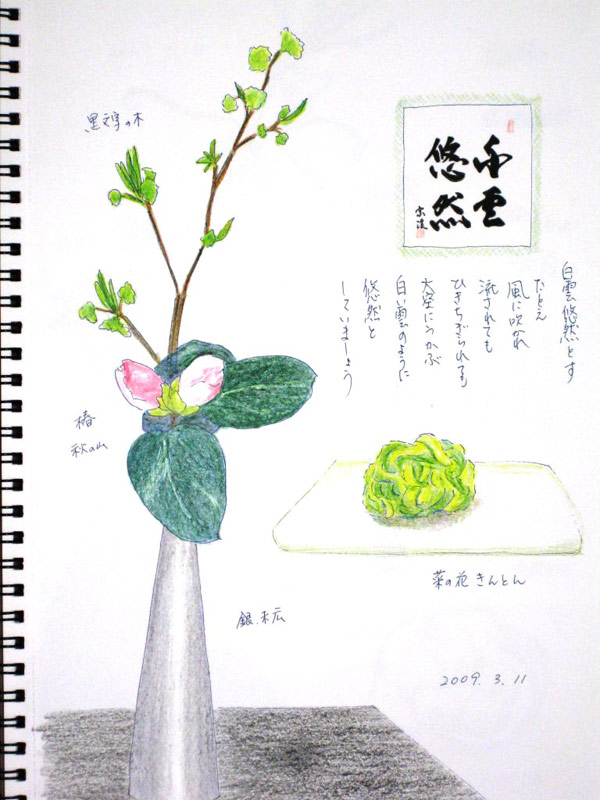 黒文字の木
白雲
悠然
白雲悠然とす
たとえ
風に吹かれ
流されても
ひきちぎられても
大空にうかぶ
白い雲のように
悠然と
していましょう
椿
秋の山
菜の花きんとん
銀、末広
2009. 3. 11